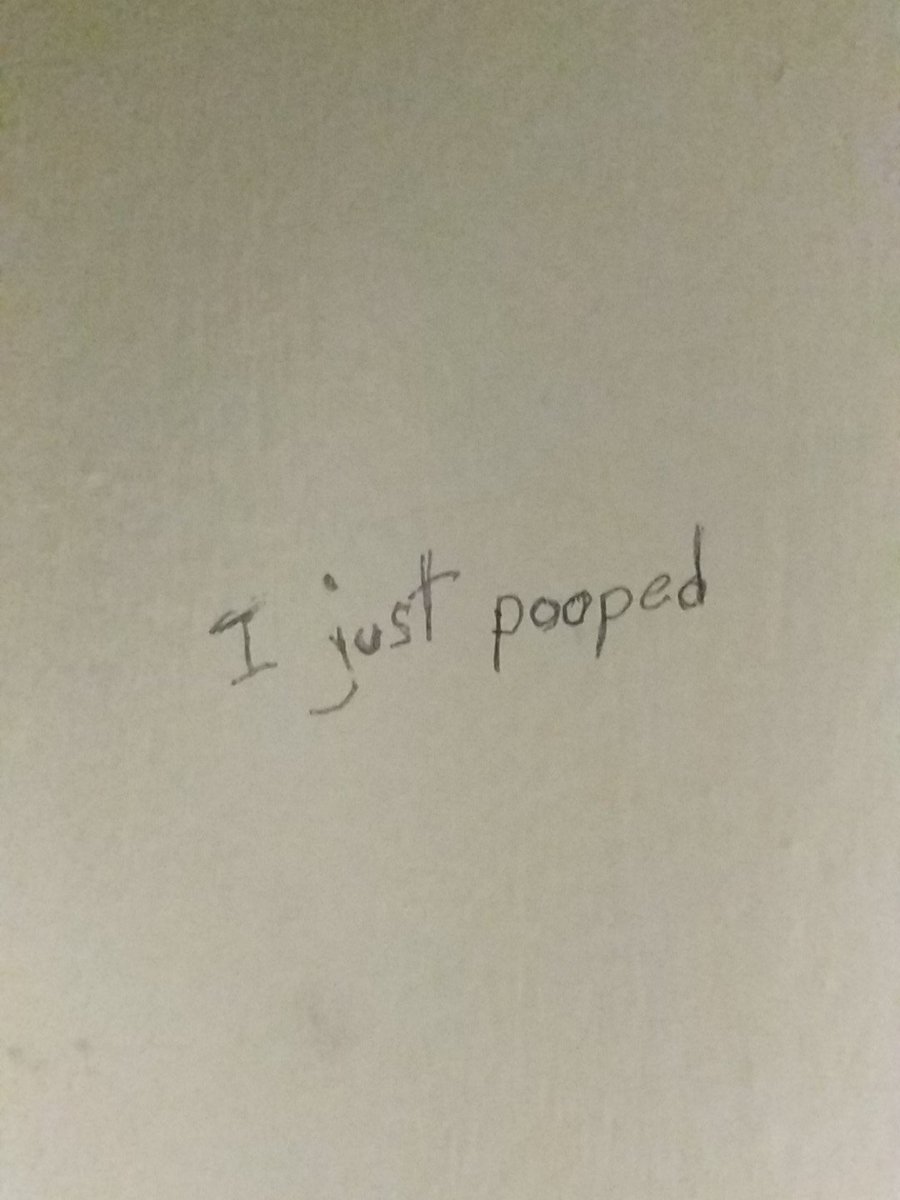 I just pooped